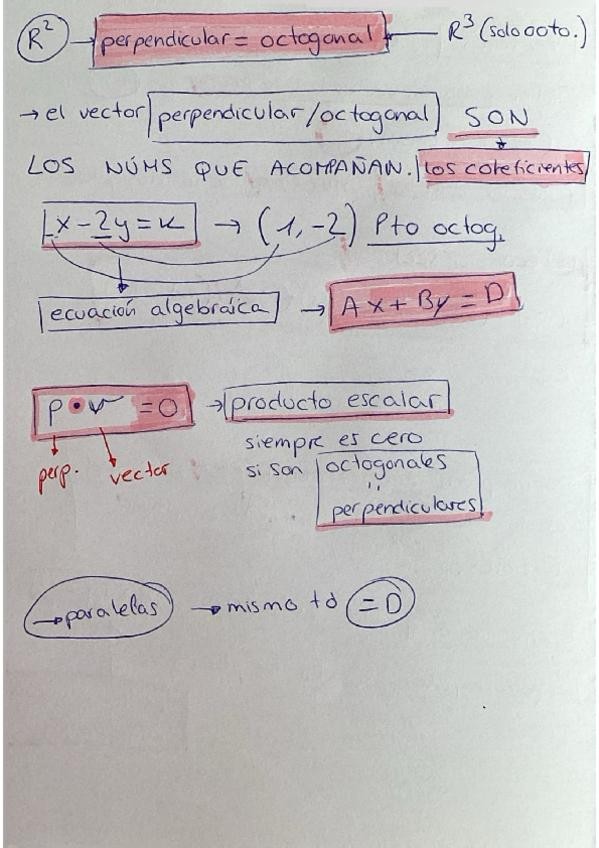 R² → perpendicular = octogonal ← R³ (solo octo.)
→ el vector perpendicular/octogonal SON
LOS NÚMS QUE ACOMPAÑAN. los coheficientes
x - 2y = K → (1, -2) Pto octog.
ecuación algebráica → Ax + By = D
p • v = 0 → producto escalar
siempre es cero
perp. vector si son octogonales
perpendiculares
→ paralelas → mismo td = D